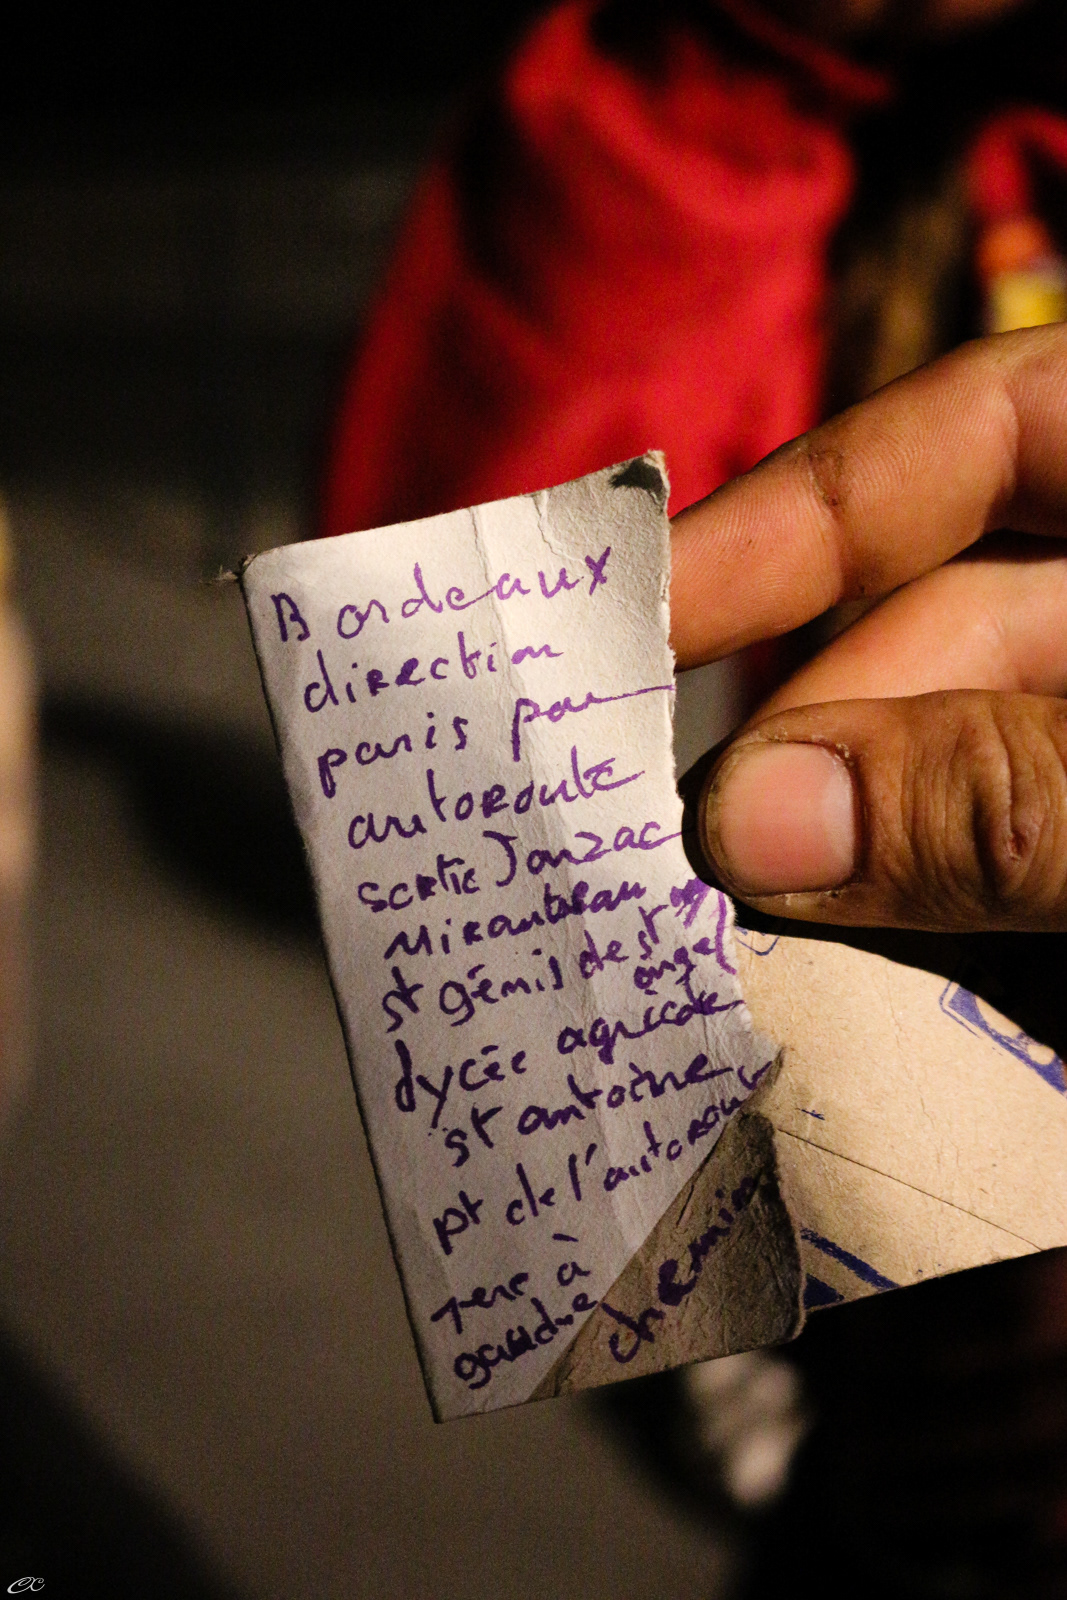 Bordeaux
direction
paris par
autoroute
sortie Jonzac
Mirambeau
st génis de st
ange
lycée agricole
st antoine
pt de l'autoroute
1ere à
gauche
chemin
CC